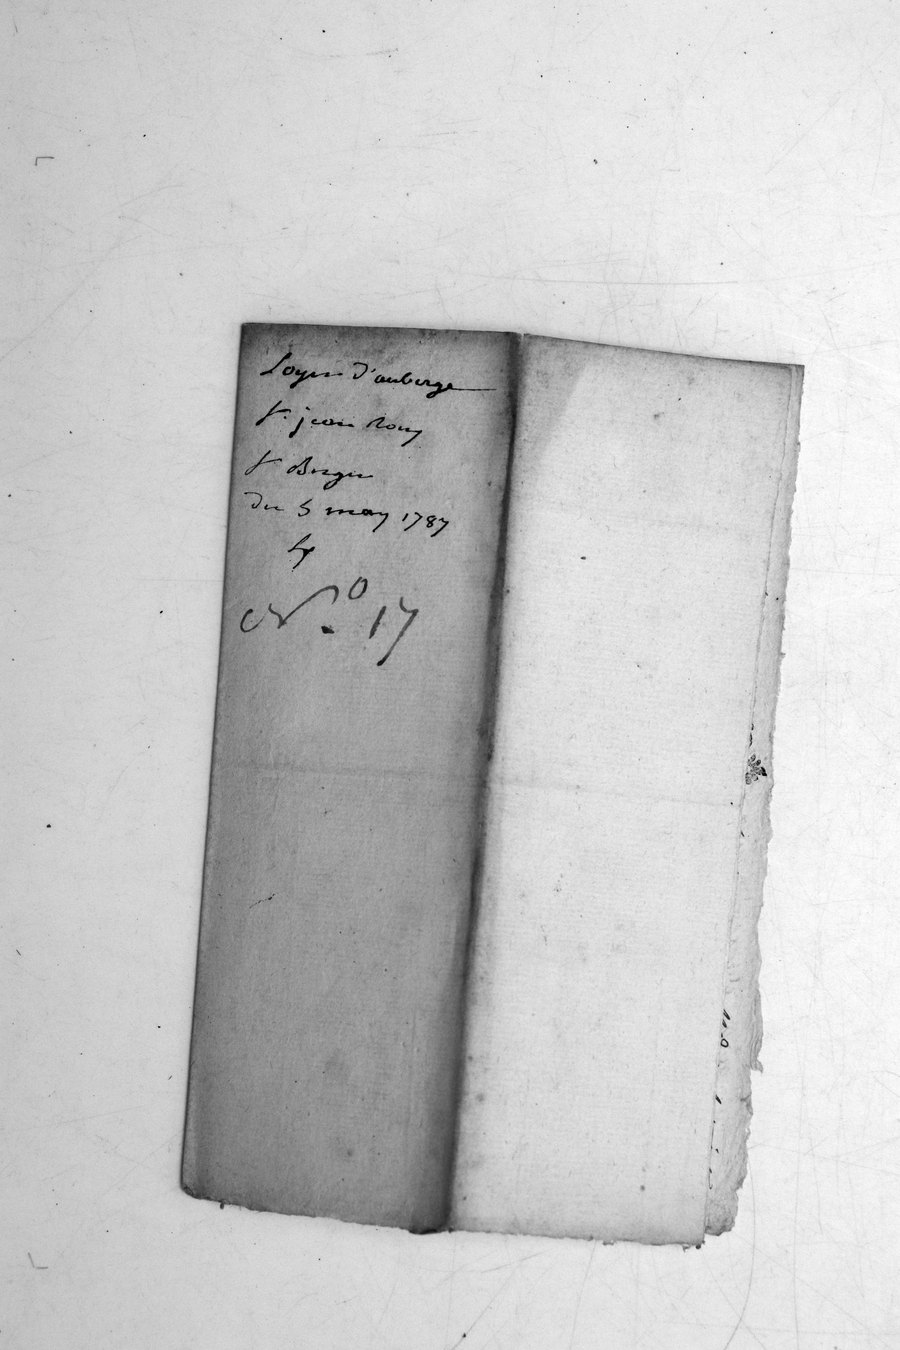 Loyer d'auberge
Sr. jean Rouy
Sr Berger
du 5 may 1787
N.o 17